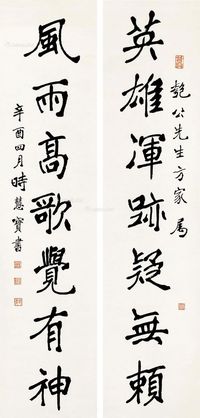 英雄渾跡疑無賴
艶公先生方家属
風雨高歌覺有神
辛酉四月時慧寶書